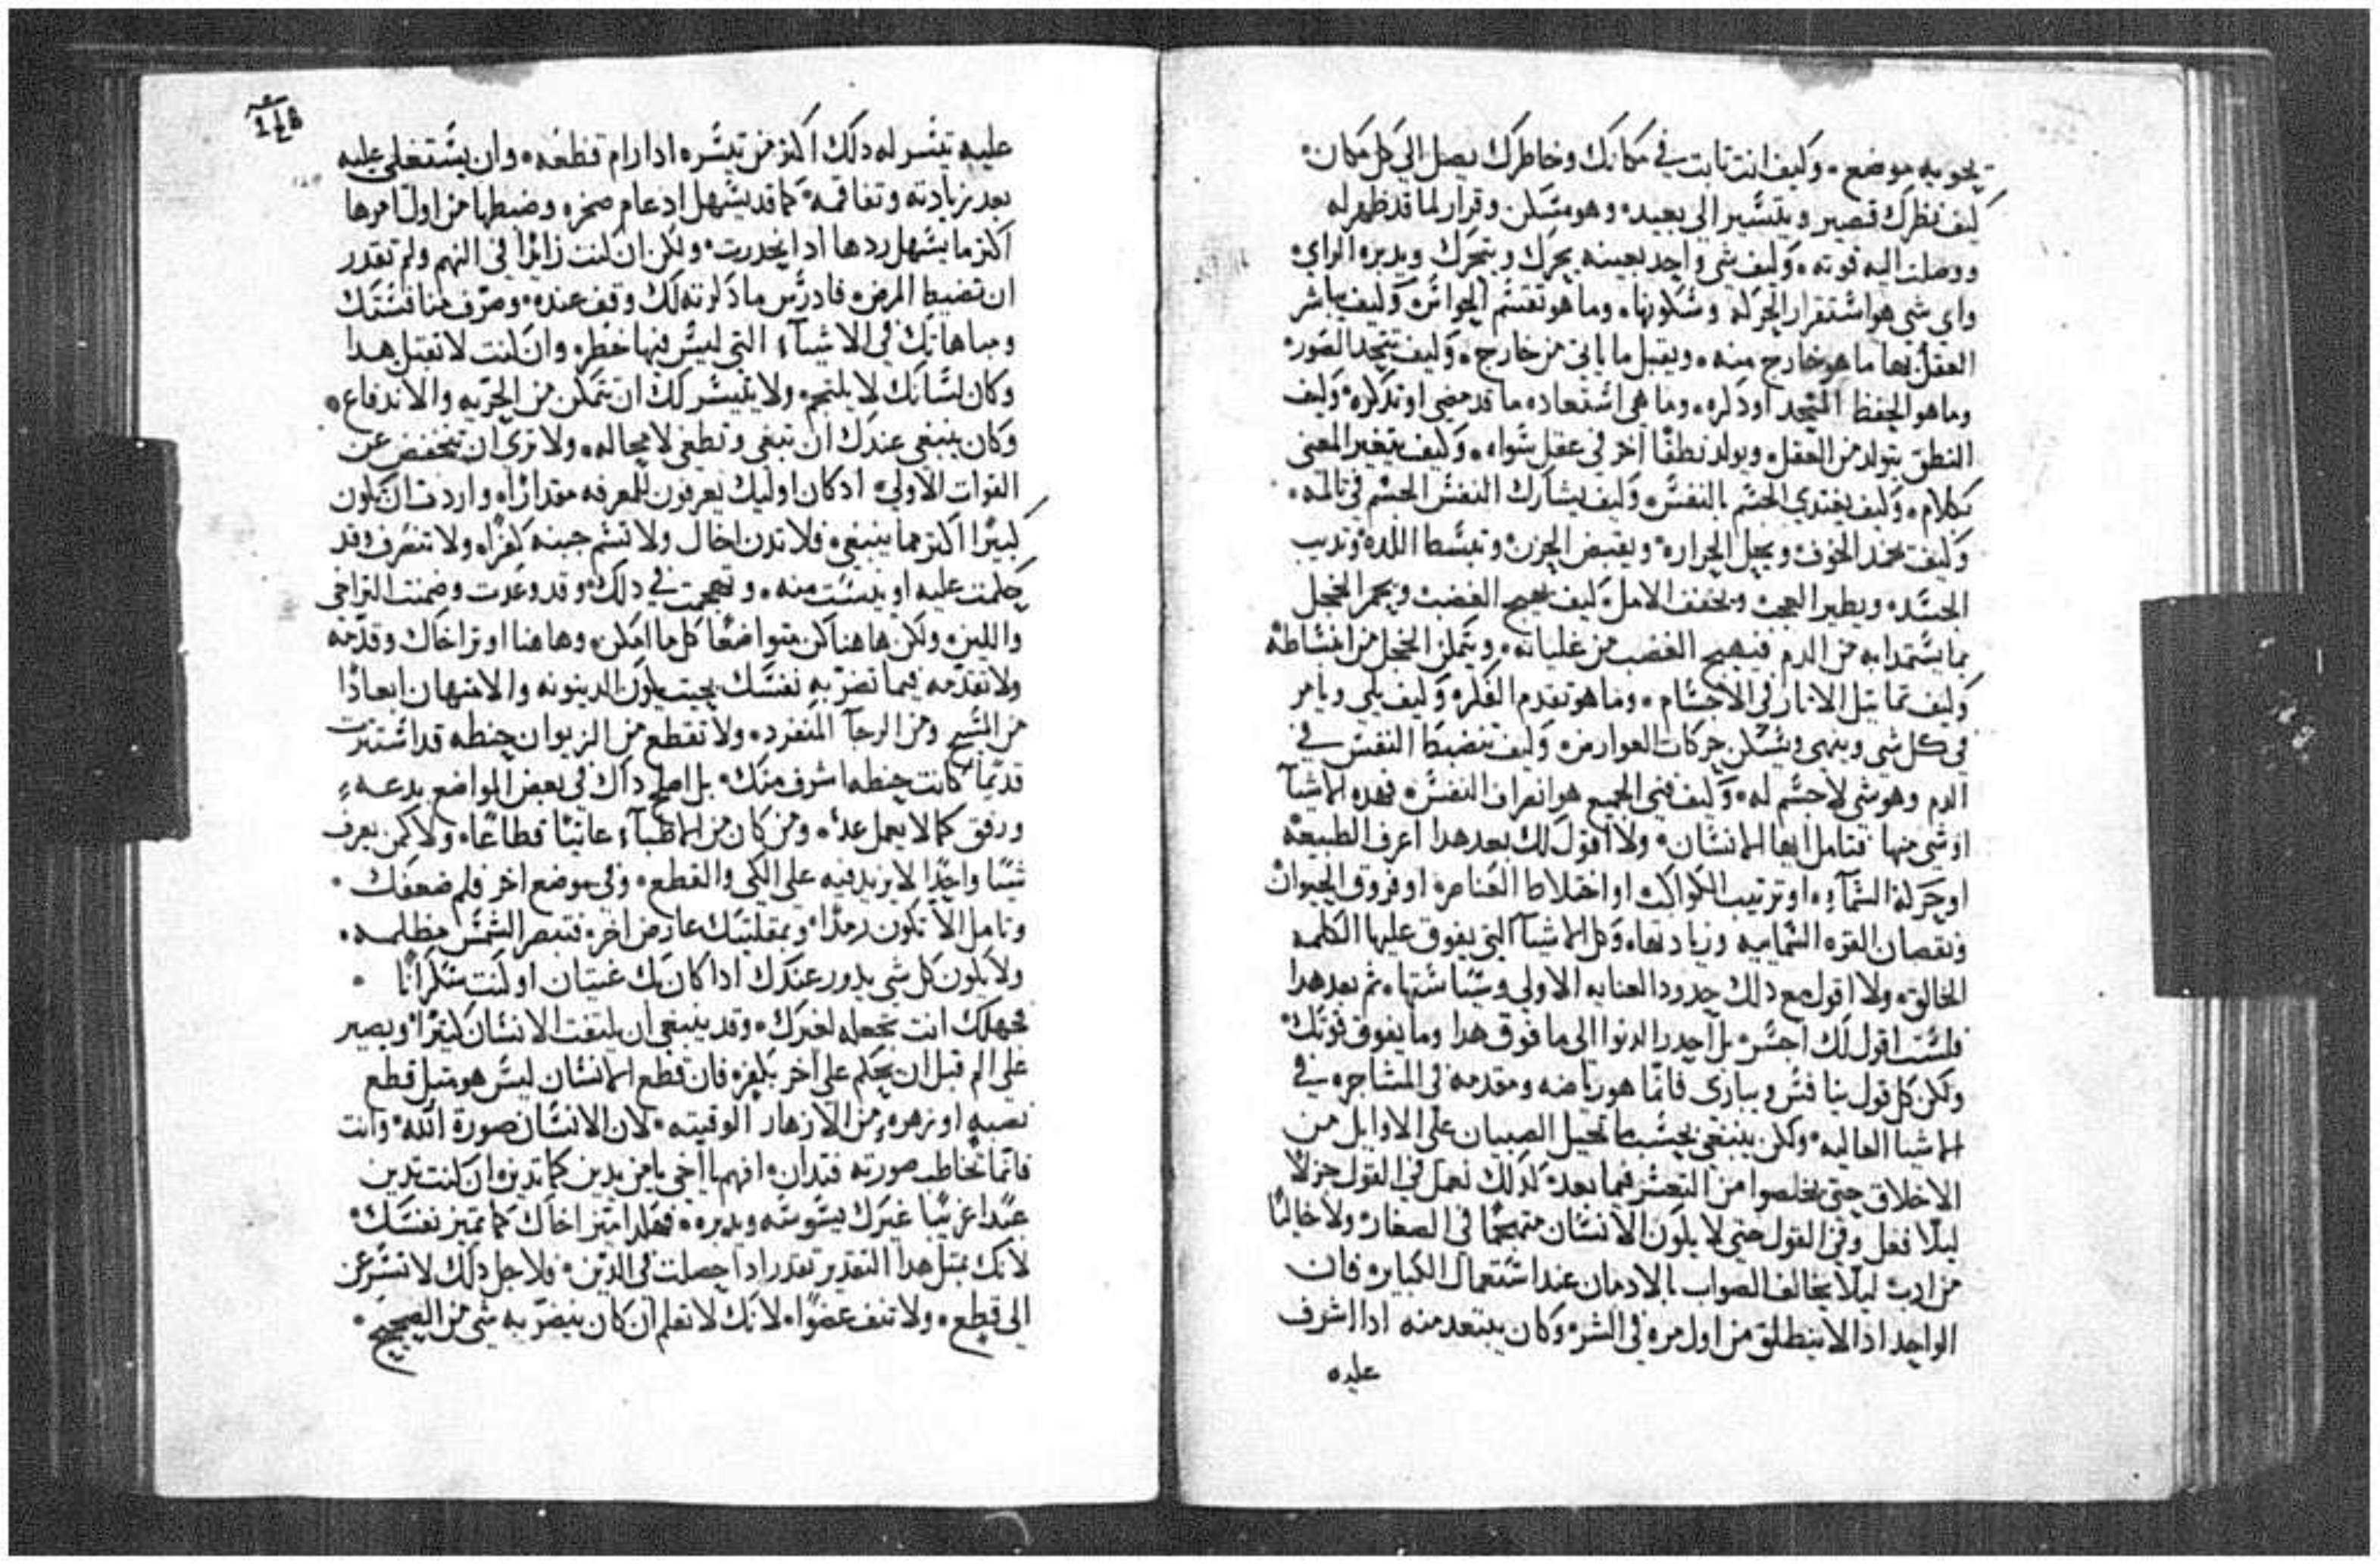 يحويه موضع . وكيف انت ثابت في مكانك وخاطرك يصل الي كل مكان .
كيف نظرك قصير ويتسير الي بعيد . وهو مسكن وقرار لما قد ظهر له
ووصلت اليه قوته . وكيف شي واحد بعينه يحرك ويتحرك ويدبره الراي .
واي شي هو استقرار الحركه وسكونها . وما هو تقسم الحواس . وكيف يباشر
العقل بها ما هو خارج منه . ويقبل ما ياتي من خارج . وكيف يتخد الصور .
وما هو الحفظ المتخد او دكره . وما هي استعاده ما قد مضي او تدكره . وكيف
النطق يتولد من العقل . ويولد نطقًا اخر في عقل سواه . وكيف يتغير المعني
بكلام . وكيف يغتدي الجسم بالنفس . وكيف يشارك النفس الجسم في تالمه .
وكيف يخمد الخوف ويحل الحراره . ويقبض الحزن . وتبسط اللده . وتديب
الحسد . ويطير العجب . ويخفف الامل . كيف يهيج الغضب ويحمر الخجل
بما يستمدا به من الدم فيهيج الغضب من غليانه . ويتمكن الخجل من انبساطه
وكيف تماثيل الاثار في الاجسام . وما هو تقدم الفكره وكيف يلي ويامر
في كل شي وينهي ويسكن حركات العوارض . وكيف تنضبط النفس في
الدم وهو شي لا جسم له . وكيف فني الجميع هو انصراف النفس . فهده الاشيآ
او شي منها فتامل ايها الانسان . ولا اقول لك بعد هدا اعرف الطبيعه
او حركة السمآء . او ترتيب الكواكب او اختلاط العناصر . او فروق الحيوان
ونقصان القوه السماييه وزيادتها . وكل الاشيآ التي يفوق عليها الكلمه
الخالقه . ولا اقول مع دلك حدود العنايه الاولي وسياستها . ثم بعد هدا
فلست اقول لك اجسر . بل احدر الدنوا الي ما فوق هدا وما يفوق قوتك .
ولكن كل قول ينافس ويبازي فانما هو رياضه ومقدمه في المشاجره في
الاشيا العاليه . ولكن ينبغي بحسبما تحيل الصبيان علي الاوايل من
الاخلاق حتي يخلصوا من التعسر فيما بعد . كدلك نعمل في القول جزلًا
ليلا فعل وفي القول حتي لا يكون الانسان متهجمًا في الصغار . ولا خاليًا
من ادب ليلا يخالف الصواب بالادمان عند استعمال الكباير . فان
الواحد اذا لا ينطلق من اول مره في الشر . وكان يبتعد منه ادا اشرف
عليه
عليه تيسر له دلك اكثر من تيسره ادا رام قطعه . وان يستعلي عليه
بعد زيادته وتفاقمه . كما قد يسهل ادعام صخره وضبطها من اول امرها
اكثر ما يسهل ردها ادا انحدرت . ولكن ان كنت زايدا في النهم ولم تقدر
ان تضبط المرض . فادرس ما دكرته لك وقف عنده . وصرف منافستك
ومباهاتك في الاشيآء التي ليس فيها خطر . وان كنت لا تقبل هدا
وكان لسانك لا يلتجم . ولا يتيسر لك ان تتمكن من الحريه والاندفاع .
وكان ينبغي عندك ان تبغي وتطغي لا محاله . ولا تري ان تنخفض عن
القوات الاولي . ادكان اوليك يعرفون للمعرفه مقدارًا . واردت ان تكون
كبيرًا اكثر مما ينبغي . فلا تدن اخاك ولا تسم جبنه كفرًا . ولا تنصرف وقد
حكمت عليه او يبست منه . وتهجمت في دلك . وقد وعدت وضمنت التراخي
واللين . ولكن هاهنا كن متواضعًا كل ما امكن . وهاهنا اوثر اخاك وقدمه
ولا تقدمه فيما تضر به نفسك بحيث يكون الدينونه والامتهان ابعادًا
من المسيح ومن الرجآ المنفرد . ولا تقطع من الزيوان حنطه قد استترت
قديمًا كانت حنطه اشرف منك . بل اصلح داك في بعض المواضع بدعه .
ورفق كما لا يعمل عدو . ومن كان من الاطبآء عاتيًا قطاعًا . ولا كمن يعرف
شيئًا واحدًا لا يزيد فيه علي الكي والقطع . وفي موضع اخر فلم ضعفك .
وتامل الا تكون رمدًا . وبمقلتيك عارض اخر . فتبصر الشمس مظلمه .
ولا يكون كل شي يدور عندك ادا كان بك غثيان او كنت سكرانًا .
فجهلك انت تجعله لغيرك . وقد ينبغي ان يلتفت الانسان كثيرًا . ويصير
علي الم قبل ان يحكم علي اخر بكفر . فان قطع الانسان ليس هو مثل قطع
نصبه او زهره . من الازهار الوقتيه . لان الانسان صورة الله . وانت
فانما تخاطب صورته فتدان . افهم يا اخي يا من يدين كما تدين . ان كنت تدين
عبدًا غريبًا غيرك يسوسه ويدبره . فهكدا ميز اخاك كما تميز نفسك .
لانك بمثل هدا التقدير تقدر ادا حصلت في الدين . فلاجل دلك لا تسرعن
الي قطع . ولا تنف عضوًا . لانك لا تعلم ان كان ينضر به شي من الصحيح .